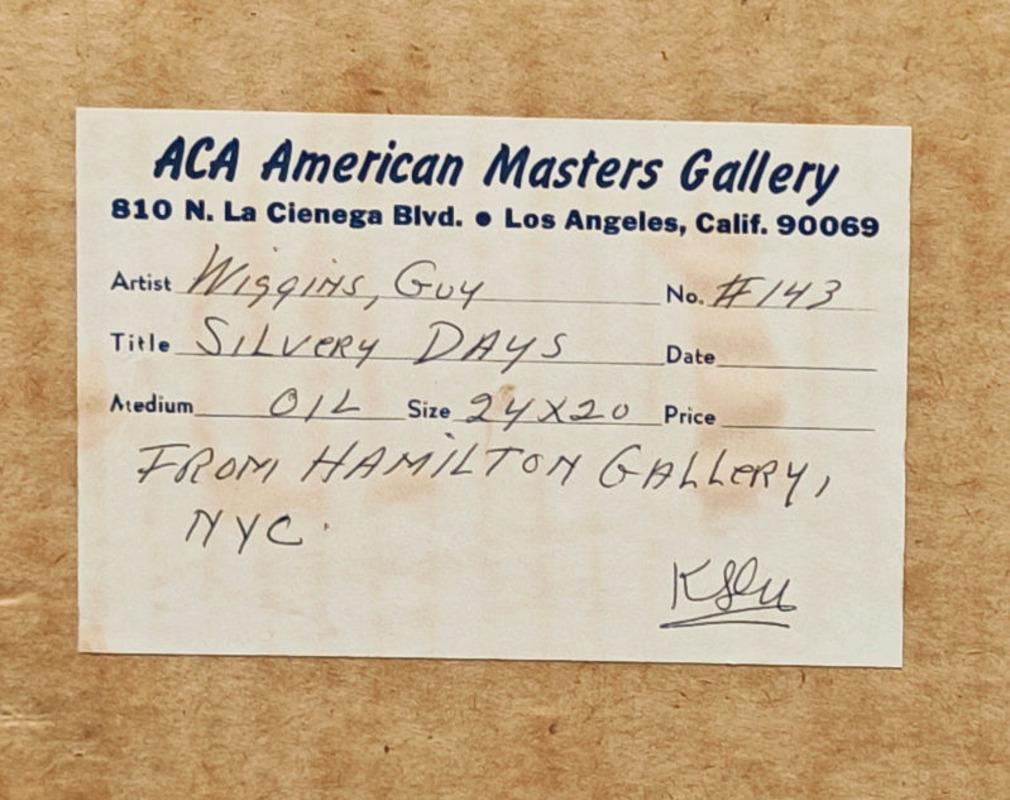 ACA American Masters Gallery
810 N. La Cienega Blvd. • Los Angeles, Calif. 90069
Artist Wiggins, Guy No. #143
Title Silvery Days Date
Medium OIL Size 24X20 Price
FROM HAMILTON GALLERY,
NYC.